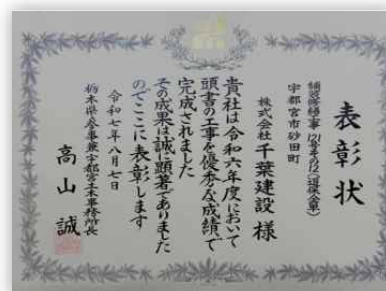 表彰状
補助修繕事 121号その12(道保全単)
宇都宮市砂田町
株式会社 千葉建設 様
貴社は令和六年度において
頭書の工事を優秀な成績で
完成されました
その成果は誠に顕著でありました
のでここに表彰します
令和七年八月七日
栃木県参事兼宇都宮土木事務所長
高山 誠